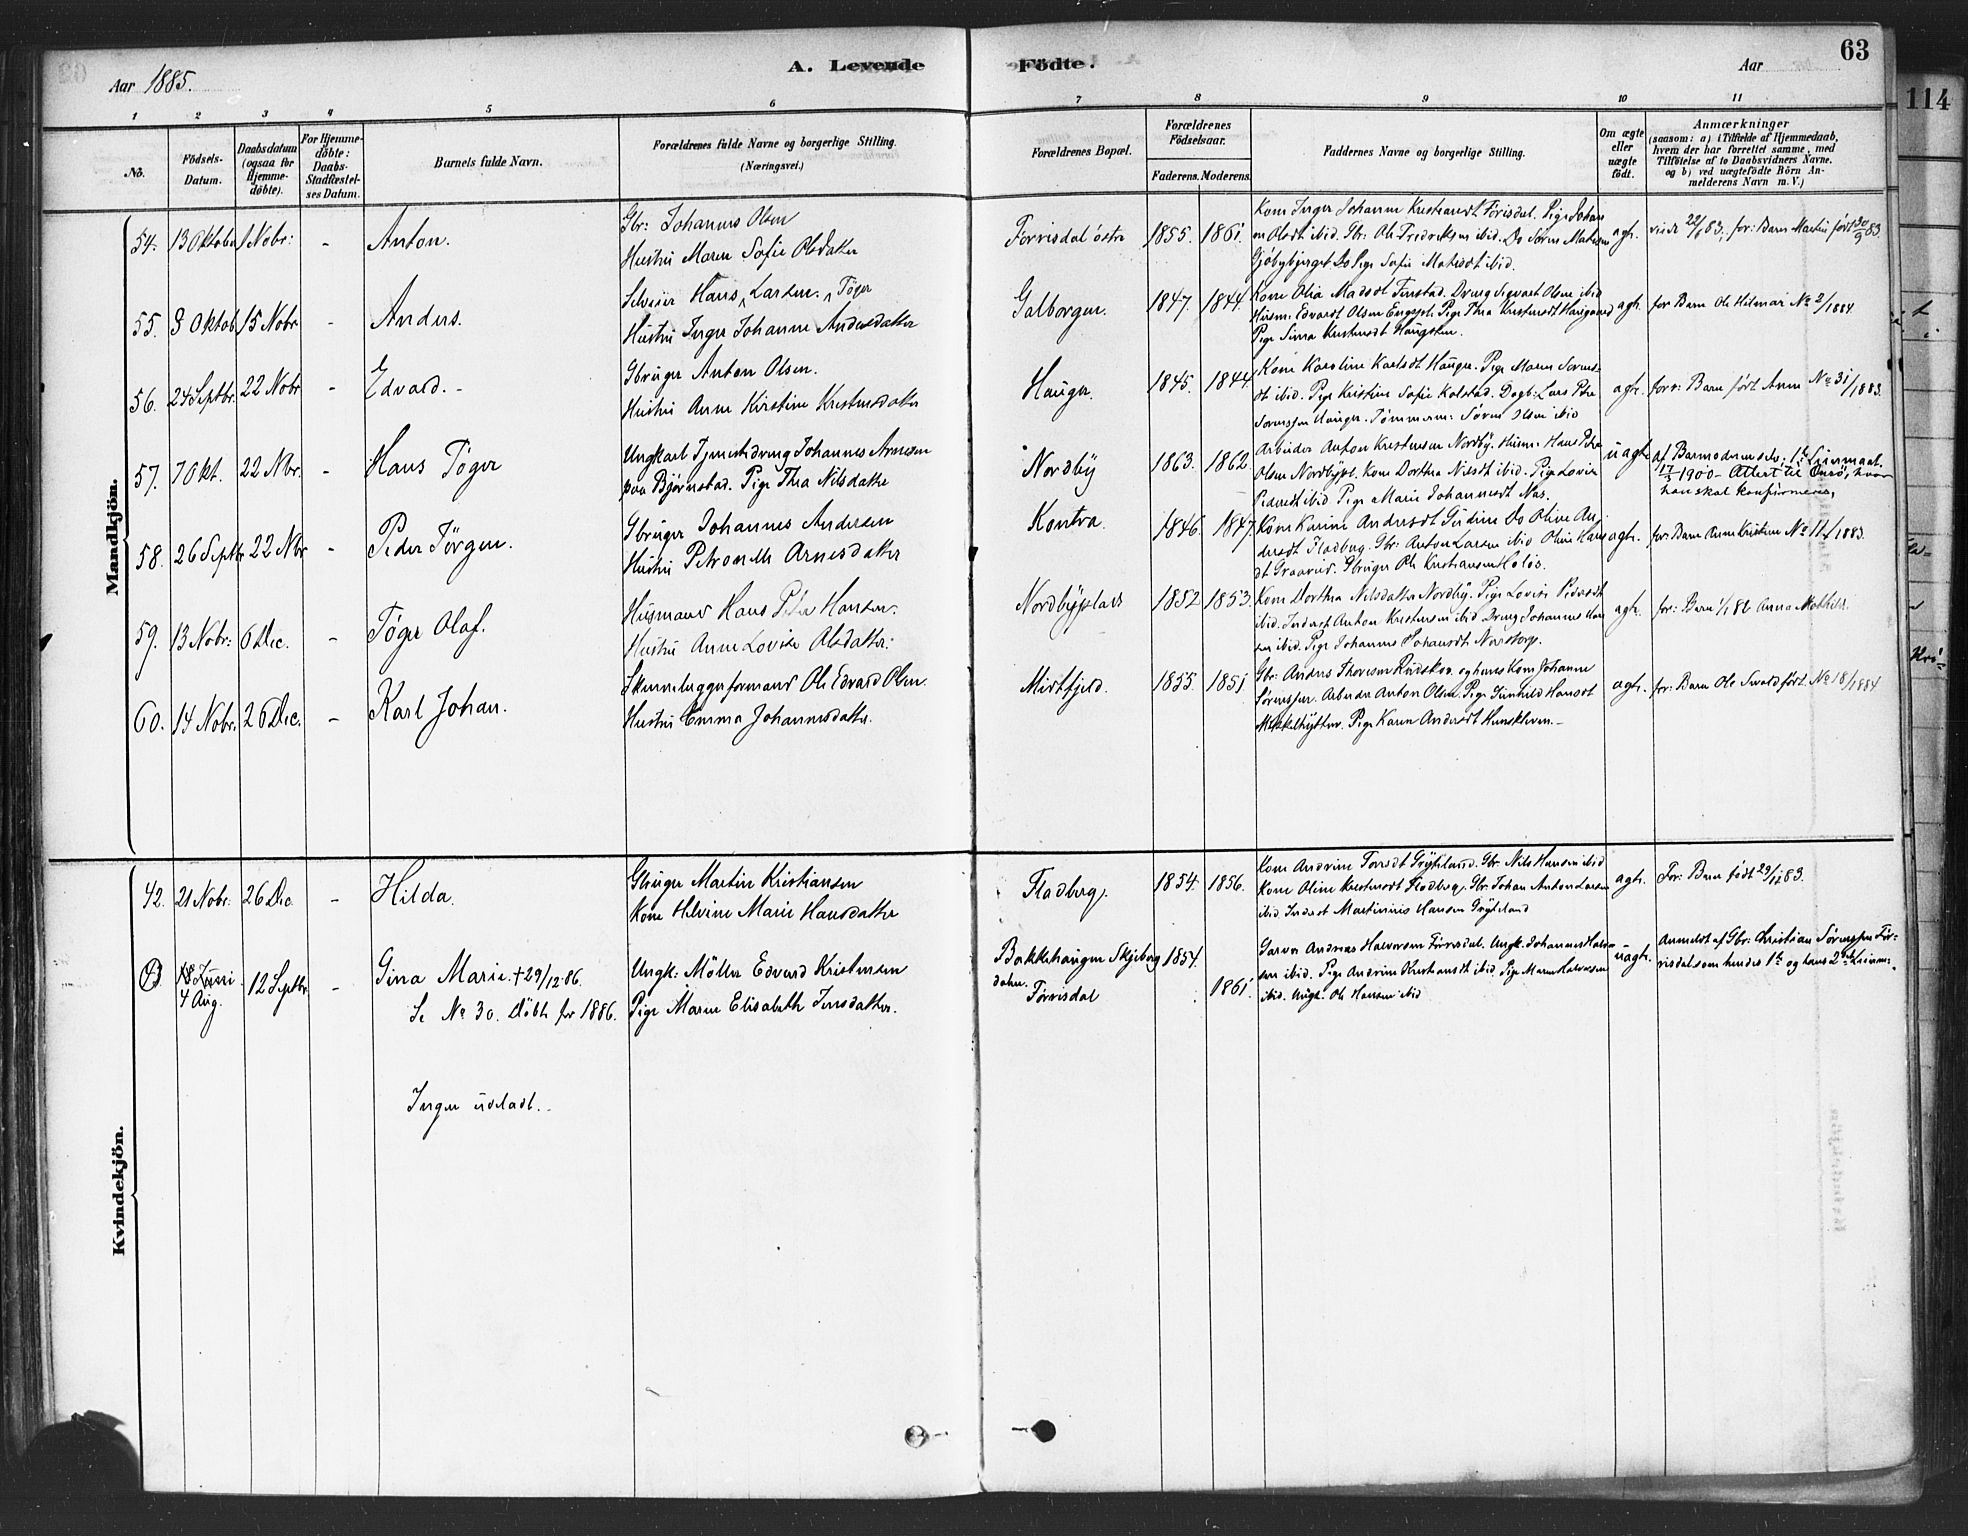 Aar 1885.
A. Levende Födte.
Aar
63
114
1 2 3 4 5 6 7 8 9 10 11
No.
Födsels-Datum.
Daabsdatum (ogsaa for Hjemme-döbte).
For Hjemme-döbte: Daabs-Stadfæstel-ses Datum.
Barnets fulde Navn.
Forældrenes fulde Navne og borgerlige Stilling.
(Næringsvei.)
Forældrenes Bopæl.
Forældrenes Födselsaar.
Faderens. Moderens.
Faddernes Navne og borgerlige Stilling.
Om ægte eller uægte födt.
Anmærkninger
(saasom: a) i Tilfælde af Hjemmedaab, hvem der har forrettet samme, med Tilföielse af to Daabsvidners Navne, og b) ved uægtefödte Börn An-melderens Navn m. V.)
Mandkjön.
54. 13 Oktober 1 Nobr: - Anton.
Gbr: Johannes Olsen
Hustru Maren Sofie Olsdatter
Torrisdal östre 1855. 1861.
Kone Inger Johanne Kristiansdt Torrisdal. Pige Johan
ne Olsdt ibid. Gbr: Ole Fredriksen ibid. Do Sören Madsen
Gjöbybjerget Do Pige Sofie Matisdt ibid.
agte.
55. 3 Oktob. 15 Nobr - Anders.
Selveier Hans Larsen. Töger
Hustru Inger Johanne Andersdatter
Galborgen. 1847. 1844.
Kone Olia Madsdt Tinstad. Dreng Sigvart Olsen ibid
Husm: Edvardt Olsen
agte. for Barn Ole Hilmar No 2/1884.
56. 24 Septbr. 22 Nobr - Edvard.
Gbruger Anton Olsen.
Hustru Anne Kirstine Kristensdatter
Hauger 1845. 1844.
Kone Karoline Karlsdt Hauger. Pige Maren Sörens-
dt ibid. Pige Kristine Sofie Kolstad. Dagb: Lars Petr
Sörenssen Hauger. Tömmerm: Sören Olsen ibid
agte. forr: Barn født Anne No 31/1883.
57. 7 Okt. 22 Nbr. - Hans Töger
Ungkarl Tjenestedreng Johannes Arnesen
paa Bjørnstad. Pige Thea Nilsdatter
Nordby 1863. 1862
Arbeider Anton Kristensen Nordby. Husm: Hans Peder
Olsen Nordbypl. Kone Dorthea Nilsdt ibid. Pige Lovise
Pedersdt ibid. Pige Marie Johannesdt Næs.
uagte af Barmoderen selv. 1ste Leiermaal.
17/3 1900 - Attest til Onsö, hvor
han skal konfirmeres,
58. 26 Septbr 22 Nbr - Peder Jörgen.
Gbruger Johannes Andersen
Hustru Petronelle Arnesdatter
Kontra. 1846. 1847.
Kone Karine Andersdt Do Oline An
dersdt Fladberg. Gbr: Anton Larsen ibid Oline Hans
dt Graarud. Gbruger Ole Kristiansen Holös.
agte. for: Barn Anne Kristine No 11/1883.
59. 13 Nobr: 6 Dec. - Töger Olaf.
Husmand Hans Peder Hansen.
Hustru Anne Lovise Olsdatter.
Nordbyplads 1852 1853.
Kone Dorthea Nilsdatter Nordby. Pige Lovise Pedersdt
ibid. Inderst Anton Kristensen ibid Dreng Johannes Han
sen ibid. Pige Johanne Johansdt Nordtorp.
agte. for: Barn 1/1 82 Anna Mathilde.
60. 14 Nobr. 26 Dec. - Karl Johan.
Skinnelæggerformand Ole Edvard Olsen.
Hustru Emma Johannesdatter.
Midtfjeld. 1855. 1851
Gbr: Anders Thoresen Rudskov. og hans Kone Johanne
Sörenssen. Arbeider Anton Olsen. Pige Gunhild Hansdt
Mikkelhytten. Pige Karen Andersdt Hunskleven.-
agte. for: Barn Ole Svald født No 18/1884
Kvindekjön.
42. 21 Nobr. 26 Dec. - Hilda.
Gbruger Martin Kristiansen
Kone Helvine Marie Hansdatter
Fladberg. 1854. 1856.
Kone Andrine Torsdt Grytiland. Gbr: Nils Hansen ibid
Kone Oline Kristensdt Fladberg. Gbr: Johan Anton Larsen
ibid. Inderst Martinius Hansen Grytiland
agte. For: Barn født 29/12 83.
43. 18 Juni
4 Aug. 12 Septbr - Gina Marie. † 29/12.86.
Se No 30. Döbte for 1886.
Ungk: Möller Edvard Kristensen
Pige Maren Elisabeth Jensdatter.
Bakkehaugen Skjeberg 1854.
Torrisdal 1861.
Garver Andreas Halvorsen Torrisdal. Ungk. Johannes Halvor
sen ibid. Pige Andrine Kristiansdt ibid. Pige Maren Halvorsen
ibid. Ungk: Ole Hansen ibid
uagte. Anmeldt af Gbr: Christian Sörenssen Tor-
risdal som hendes 1ste og hans 2det Leierm:
Ingen udeladt.